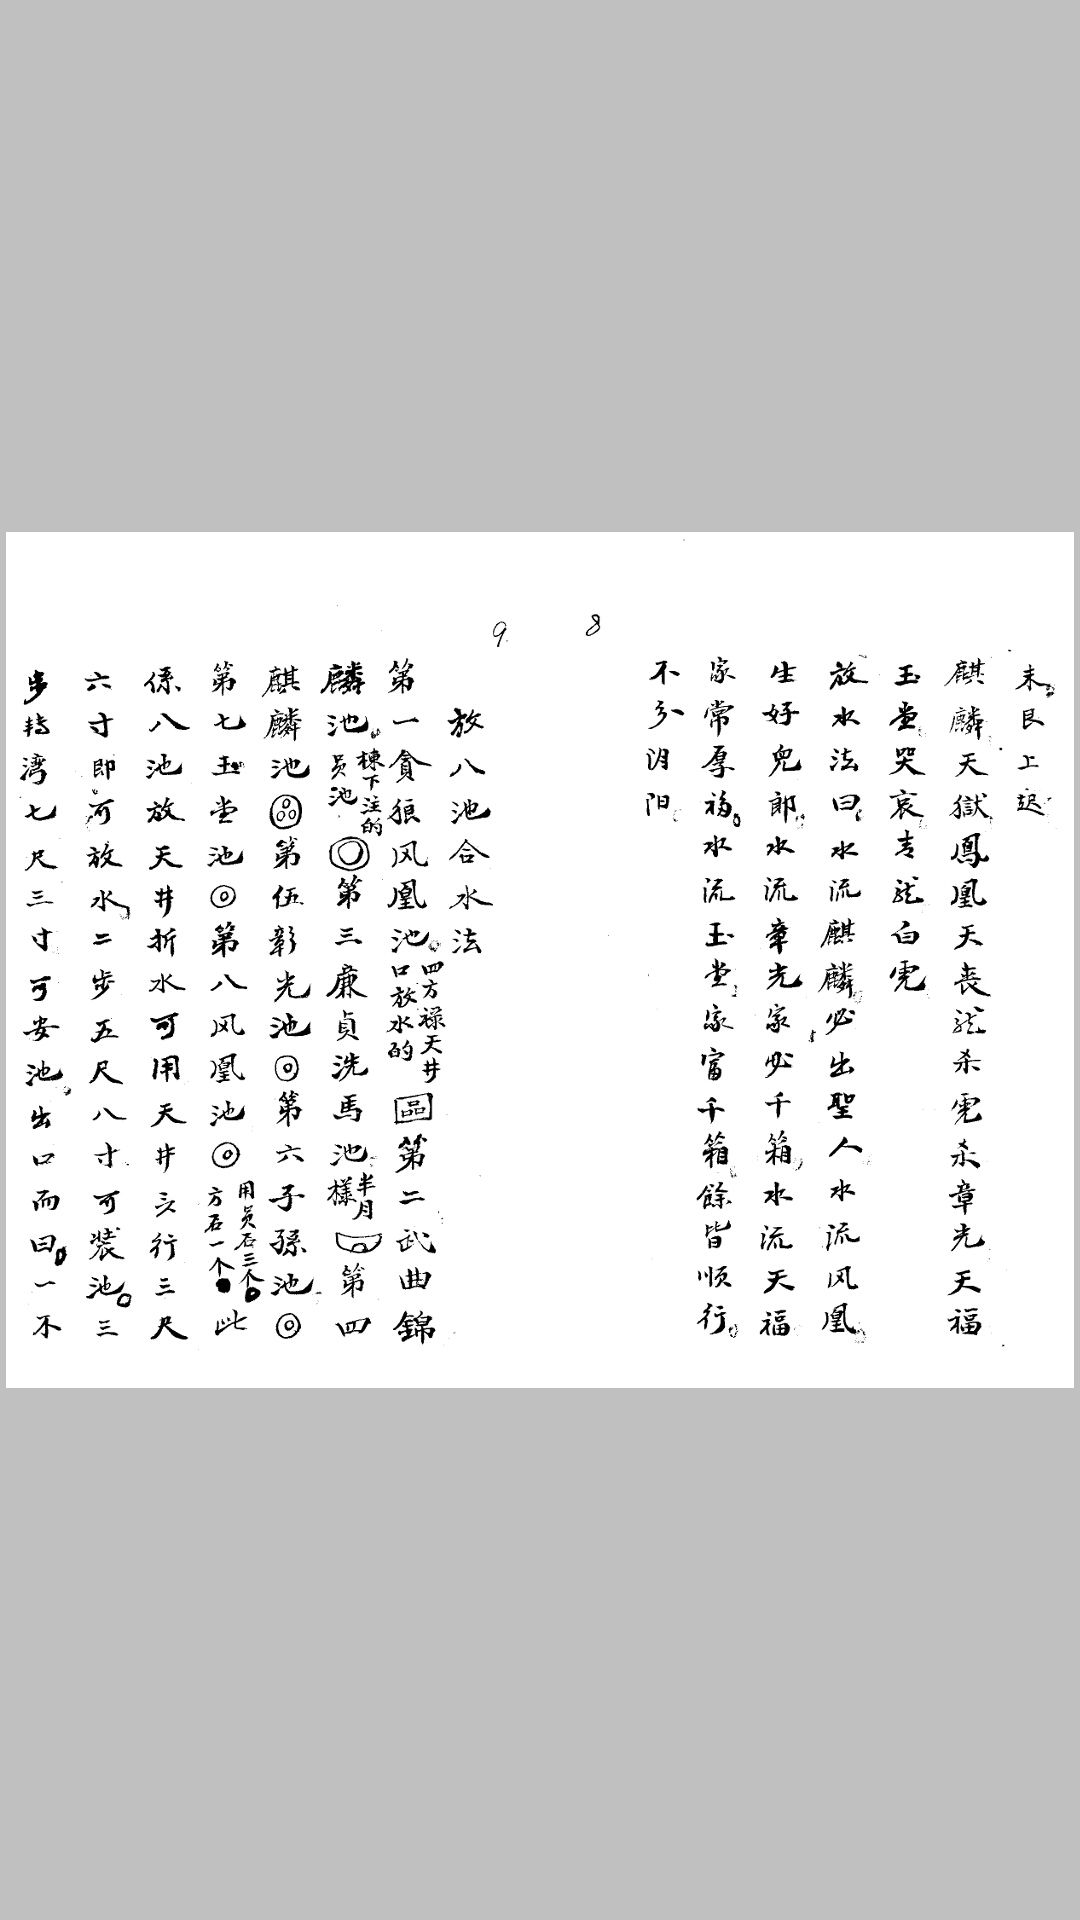 8
未。艮上起
麒麟天獄鳳凰天喪龙杀虎杀章光天福
玉堂哭哀青龙白虎
放水法曰水流麒麟必出聖人水流风凰
生好兒郎水流章光家必千箱水流天福
家常厚福。水流玉堂家富千箱餘皆順行。
不分阴阳
9.
放八池合水法
第一貪狼风凰池。四方禄天井口放水的 第二武曲錦
麟池。棟下注的员池 第三廉貞洗馬池半月樣 第四
麒麟池 第伍彰光池 第六子孫池
第七玉堂池 第八风凰池 用员石三个。方石一个 此
係八池放天井折水可用天井 行三尺
六寸即可放水二步五尺八寸可装池。三
步转湾七尺三寸可安池。出口而曰。一不